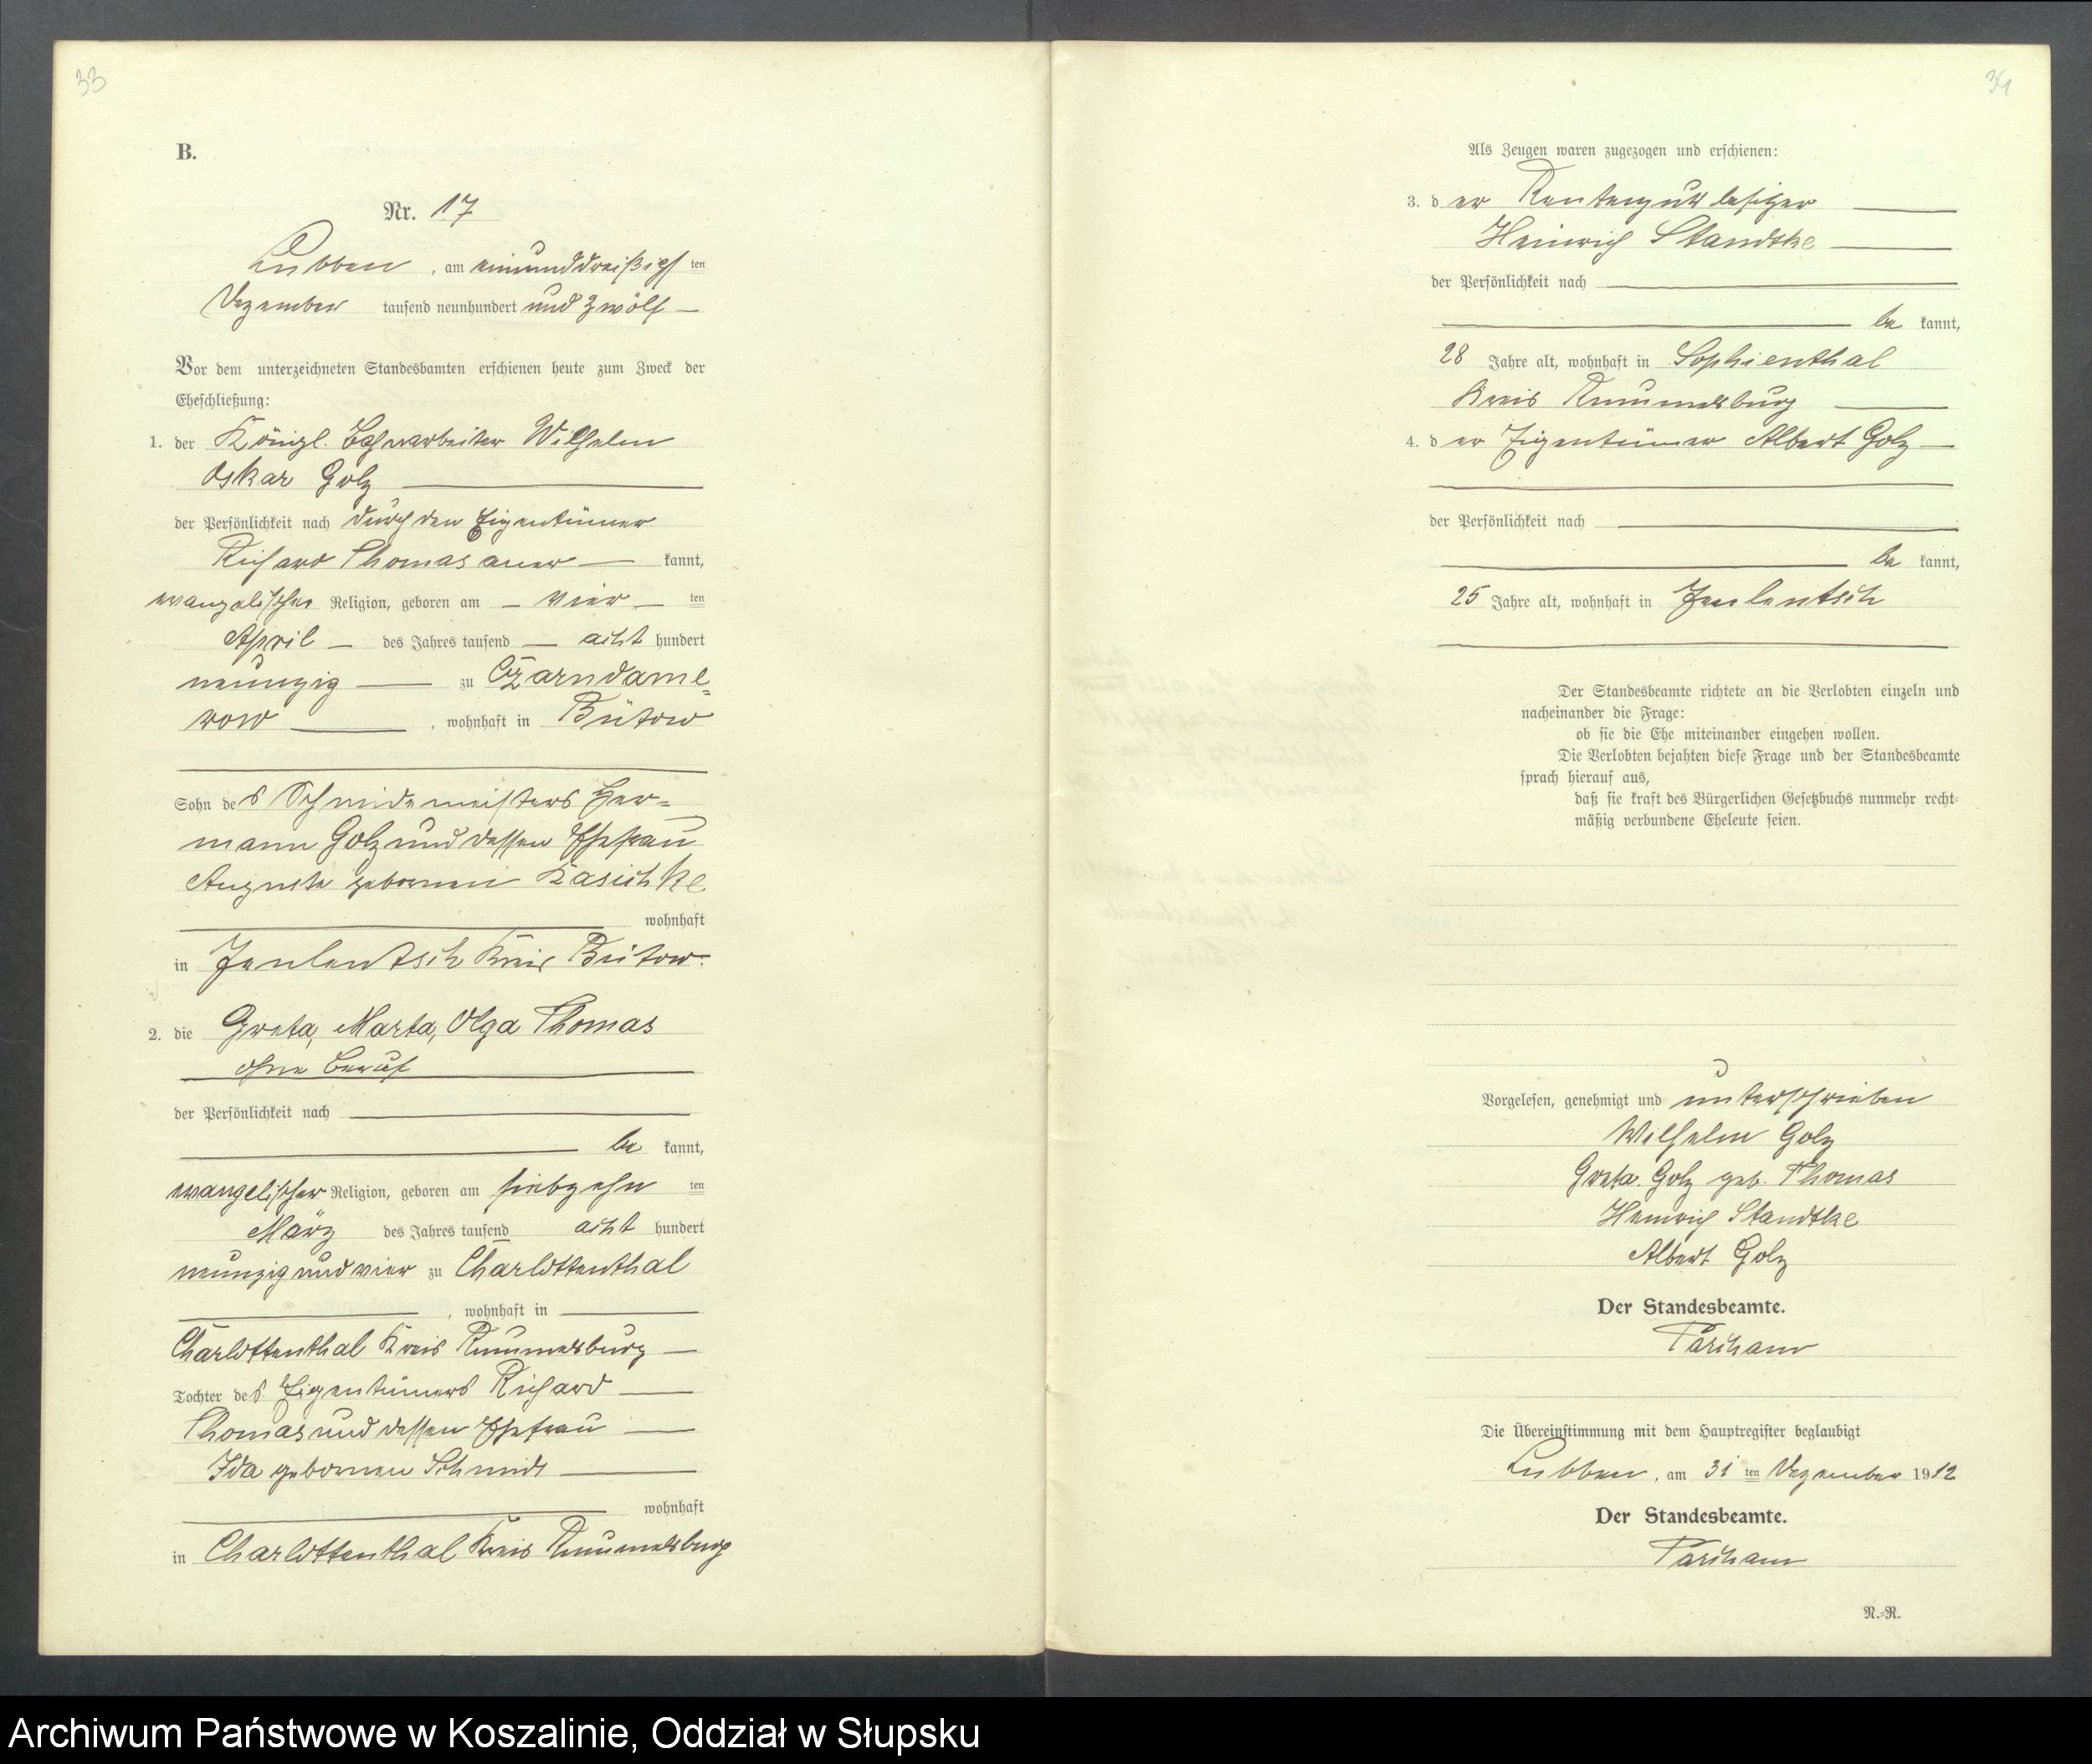 33
B.
Nr. 17
Lubben, am einunddreißigsten
Dezember tausend neunhundert und zwölf
Vor dem unterzeichneten Standesbamten erschienen heute zum Zweck der
Eheschließung:
1. der Königl. Bahnarbeiter Wilhelm
Oskar Golz
der Persönlichkeit nach durch den Eigentümer
Richard Thomas aner kannt,
evangelischer Religion, geboren am vier ten
April des Jahres tausend acht hundert
neunzig zu Czarndame-
row, wohnhaft in Bütow
Sohn des Schmiedemeisters Her-
mann Golz und dessen Ehefrau
Auguste geborenen Kasischke
wohnhaft
in Kreis Bütow.
2. die Greta, Marta, Olga Thomas
ohne Beruf
der Persönlichkeit nach
be kannt,
evangelischer Religion, geboren am siebzehn ten
März des Jahres tausend acht hundert
neunzig und vier zu Charlottenthal
, wohnhaft in
Charlottenthal Kreis Rummelsburg
Tochter des Eigentümers Richard
Thomas und dessen Ehefrau
Ida geborenen Schmidt
wohnhaft
in Charlottenthal Kreis Rummelsburg
34
Als Zeugen waren zugezogen und erschienen:
3. der Rentengutsbesitzer
Heinrich Standtke
der Persönlichkeit nach
be kannt,
28 Jahre alt, wohnhaft in Sophienthal
Kreis Rummelsburg
4. der Eigentümer Albert Golz
der Persönlichkeit nach
be kannt,
25 Jahre alt, wohnhaft in
Der Standesbeamte richtete an die Verlobten einzeln und
nacheinander die Frage:
ob sie die Ehe miteinander eingehen wollen.
Die Verlobten bejahten diese Frage und der Standesbeamte
sprach hierauf aus,
daß sie kraft des Bürgerlichen Gesetzbuchs nunmehr recht-
mäßig verbundene Eheleute seien.
Vorgelesen, genehmigt und unterschrieben
Wilhelm Golz
Greta Golz geb. Thomas
Heinrich Standtke
Albert Golz
Der Standesbeamte.
Die Übereinstimmung mit dem Hauptregister beglaubigt
Lubben, am 31 ten Dezember 1912
Der Standesbeamte.
N.-R.
Archiwum Państwowe w Koszalinie, Oddział w Słupsku